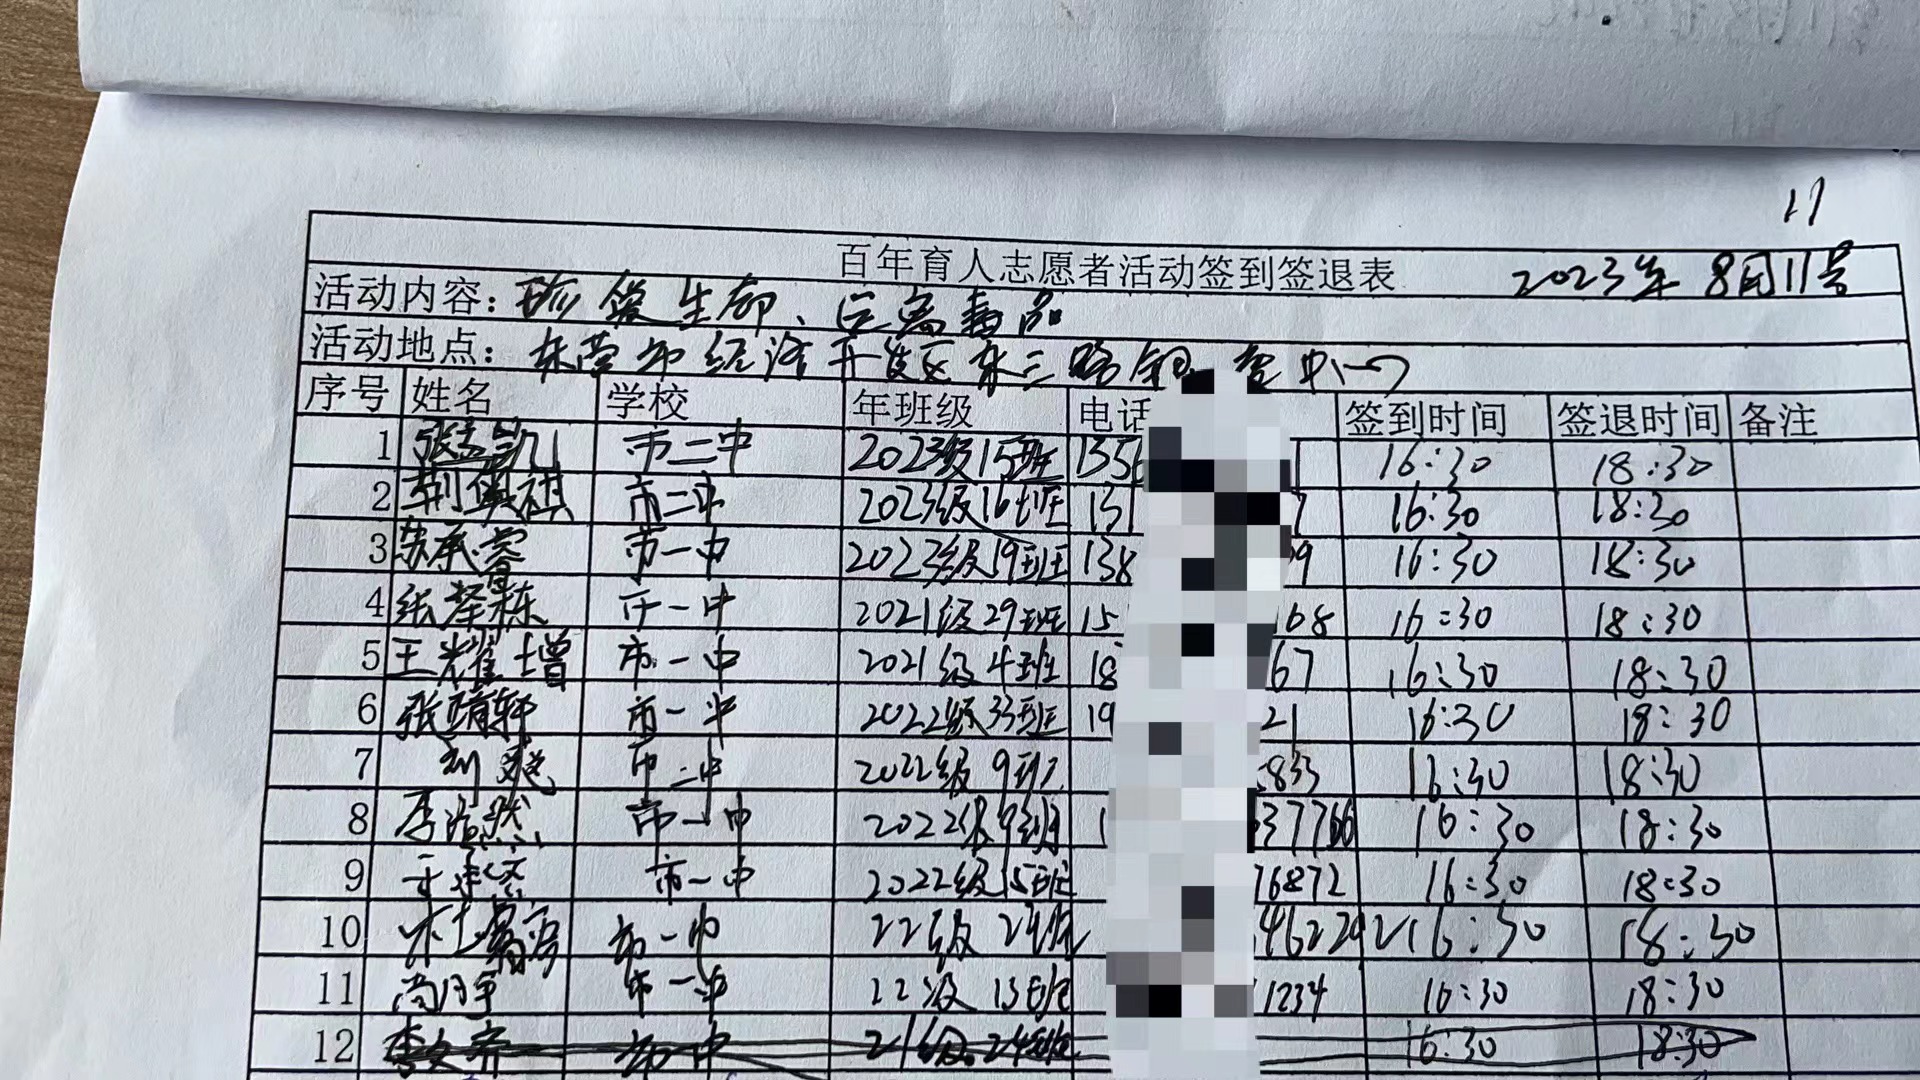 17
百年育人志愿者活动签到签退表 2023年8月11号
活动内容：珍爱生命、远离毒品
活动地点：东营市经济开发区东三路银座中心
序号 姓名 学校 年班级 电话 签到时间 签退时间 备注
1 张孟凯 市二中 2023级15班 135 16:30 18:30
2 荆 祺 市二中 2023级16班 15 7 16:30 18:30
3 苏承睿 市一中 2023级19班 138 9 16:30 18:30
4 张 栋 市一中 2021级29班 15 168 16:30 18:30
5 王耀增 市一中 2021级4班 18 67 16:30 18:30
6 张靖轩 市一中 2022级33班 19 21 16:30 18:30
7 刘爽 市二中 2022级9班 833 16:30 18:30
8 李浩然 市一中 2022级9班 1 637766 16:30 18:30
9 于 市一中 2022级15班 76872 16:30 18:30
10 市一中 22级 班 16:30 18:30
11 尚 市一中 22级13班 1234 16:30 18:30
12 李文齐 市一中 21级24班 16:30 18:30